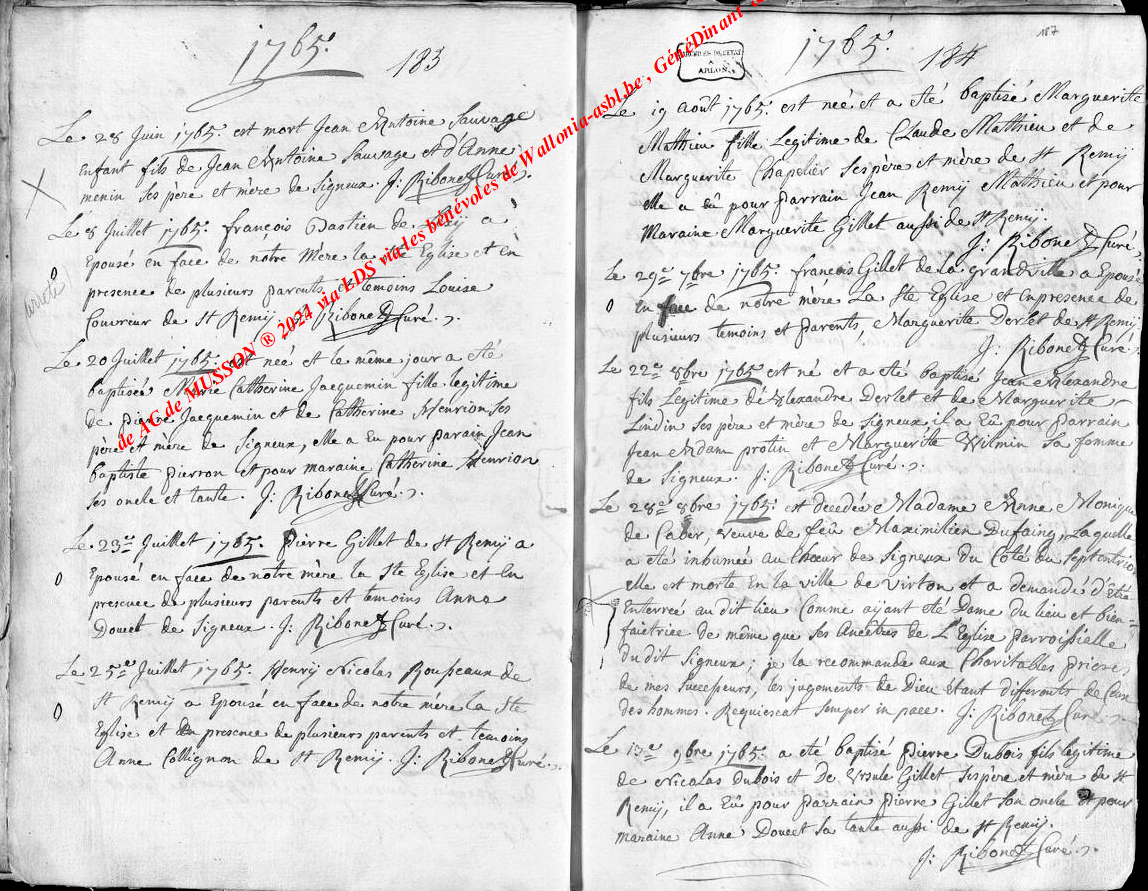 1765.
183
Le 28 Juin 1765. est mort Jean Antoine Sauvage
enfant fils de Jean Antoine Sauvage et d'Anne
menin ses père et mère de Signeux. J: Ribonet Curé.
Le 8 Juillet 1765. françois Bastien de a
Epousé en face de notre Mère la Ste Eglise et en
presence de plusieurs parents et temoins Louise
Couvreur de St Remij. J: Ribonet Curé.
arrêté
Le 20 Juillet 1765. est neé et le même jour a eté
baptisée Marie Catherine Jacquemin fille legitime
de pierre Jacquemin et de Catherine Henrion ses
père et mère de Signeux, elle a Eu pour parain Jean
baptiste pierron et pour maraine Catherine Henrion
ses oncle et tante. J: Ribonet Curé.
Le 23e Juillet 1765. pierre Gillet de St Remij a
Epousé en face de notre mère la Ste Eglise et En
presence de plusieurs parents et temoins Anne
Doucet de Signeux. J: Ribonet Curé.
Le 25e Juillet 1765. Henrij Nicolas Rousseaux de
St Remij a Epousé en face de notre mère la Ste
Eglise et En presence de plusieurs parents et temoins
Anne Collignon de St Remij. J: Ribonet Curé.
1765.
184
187
ARCHIVES DE L'ETAT
A
ARLON
Le 19 août 1765. est neé et a eté baptisé Margueritte
Mathieu fille Legitime de Claude Mathieu et de
Marguerite Chapelier ses père et mère de St Remij
elle a Eu pour parrain Jean Remij Mathieu et pour
Maraine Marguerite Gillet aussi de St Remij.
J: Ribonet Curé
Le 29e 7bre 1765. francois Gillet de la grandville a Epousé
en face de notre mère La Ste Eglise et En presence de
plusieurs temoins et parents, Marguerite Derlet de St Remij
J: Ribonet Curé.
Le 22e 8bre 1765 est né et a eté baptisé Jean Alexandre
fils Légitime d'Alexandre Derlet et de Marguerite
Lindin ses père et mère de Signeux, il a Eû pour parrain
Jean Adam protin et Marguerite Wilmin sa femme
de Signeux. J: Ribonet Curé.
Le 28e 8bre 1765. est decedée Madame Anne Monique
de Caber, veuve de feu Maximilien Dufaing, Laquelle
a eté inhumée au Chœur de Signeux du Coté du Septentrion
elle est morte En la ville de Virton et a demandé d'être
Enterrée au dit lieu Comme aijant eté Dame du lieu et bien=
faictrice de même que ses Ancêtres de L'Eglise parroissialle
du dit Signeux; je la recommande aux Charitables prieres
de mes successeurs, les jugements de Dieu Etant differents de Ceux
des hommes. Requiescat semper in pace. J: Ribonet Curé
Le 13e 9bre 1765. a eté baptisé pierre Dubois fils legitime
de Nicolas Dubois et De Ursule Gillet ses père et mère de St
Remij, il a Eû pour parrain pierre Gillet son oncle et pour
maraine Anne Doucet sa tante aussi de St Remij.
J: Ribonet Curé.
de AC de MUSSON ® 2024 via LDS via les bénévoles de Wallonia-asbl.be , GénéDinant